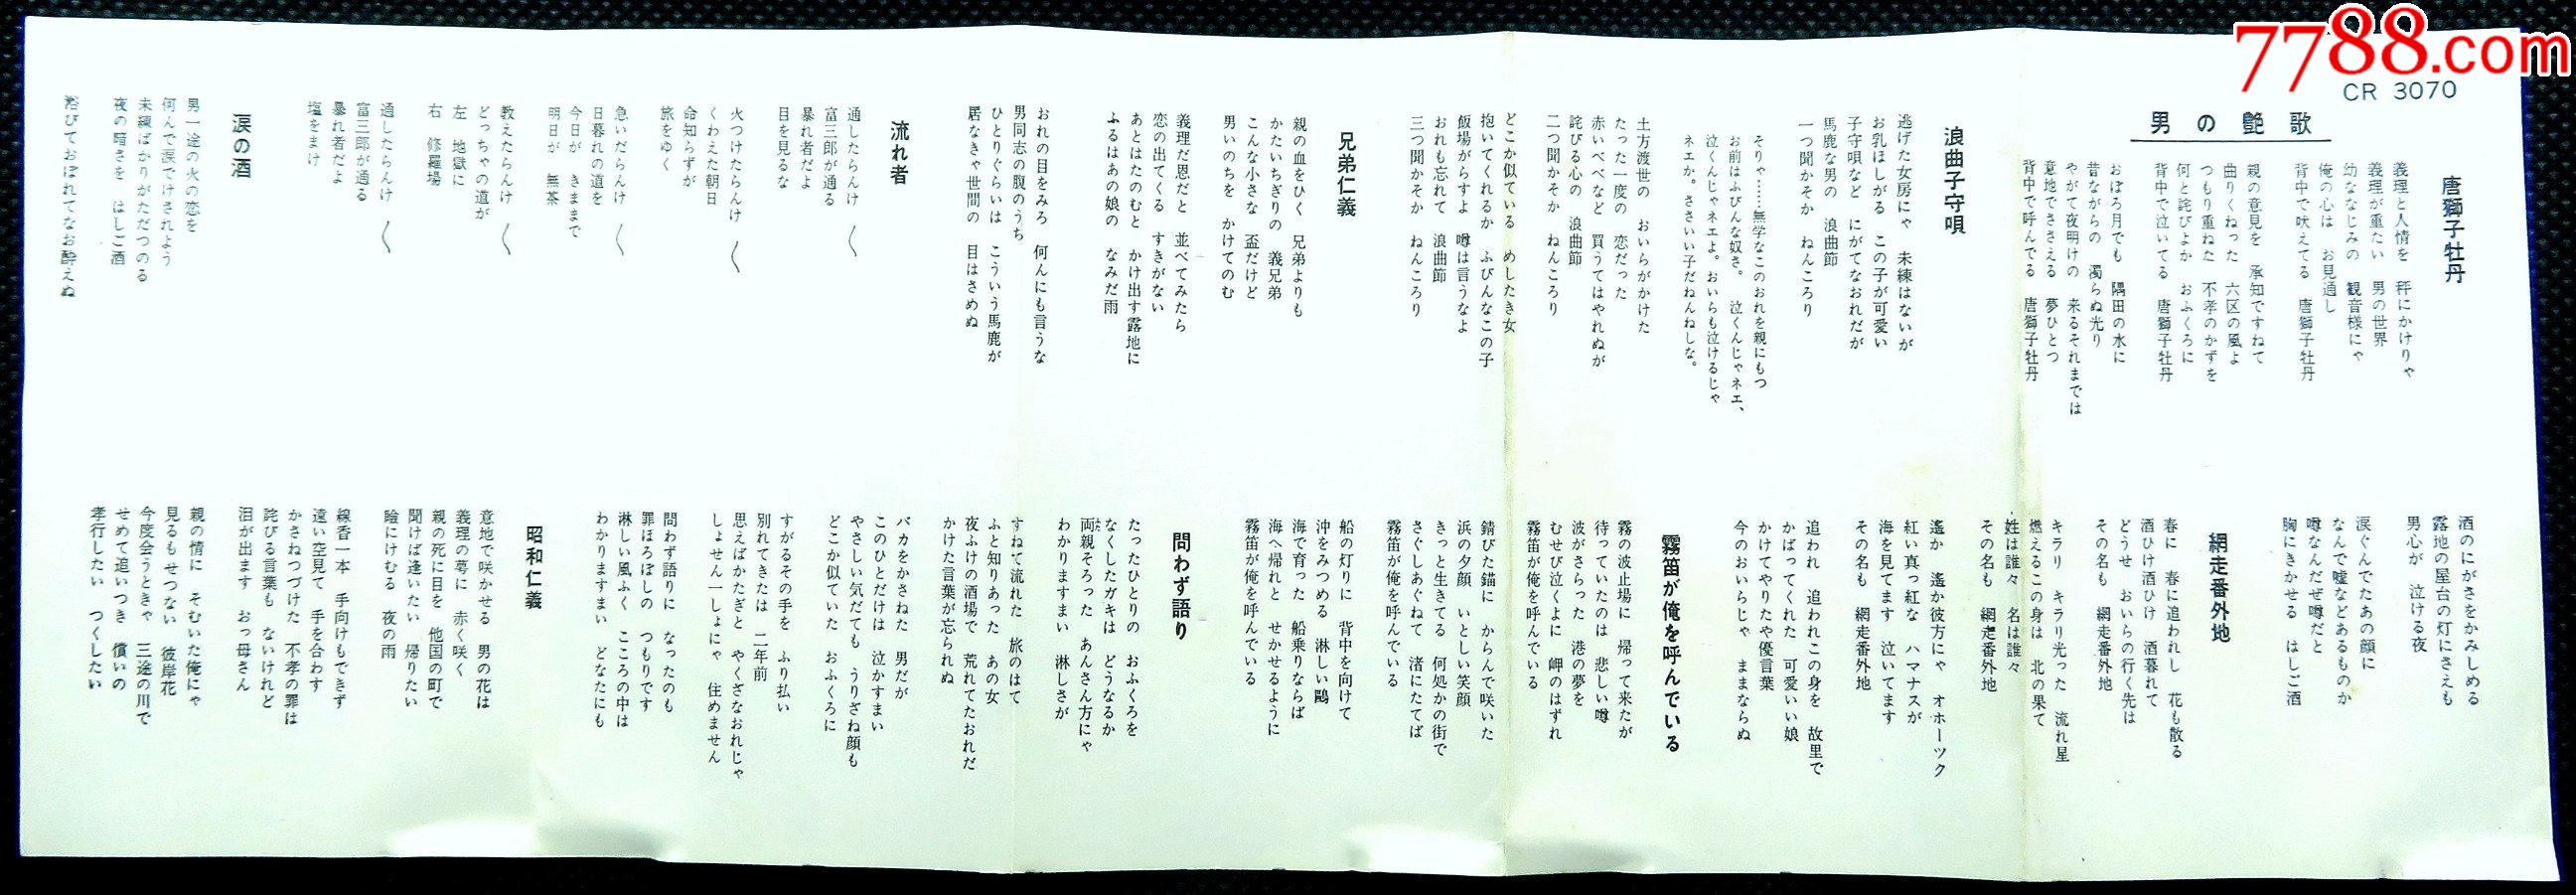 7788.com
CR 3070
男の艶歌
唐獅子牡丹
義理と人情を 秤にかけりゃ
義理が重たい 男の世界
幼ななじみの 観音様にゃ
俺の心は お見通し
背中で吠えてる 唐獅子牡丹
親の意見を 承知ですねて
曲りくねった 六区の風よ
つもり重ねた 不孝のかずを
何と詫びよか おふくろに
背中で泣いてる 唐獅子牡丹
おぼろ月でも 隅田の水に
昔ながらの 濁らぬ光り
やがて夜明けの 来るそれまでは
意地でささえる 夢ひとつ
背中で呼んでる 唐獅子牡丹
浪曲子守唄
逃げた女房にゃ 未練はないが
お乳ほしがる この子が可愛い
子守唄など にがてなおれだが
馬鹿な男の 浪曲節
一つ聞かそか ねんころり
そりゃ……無学なこのおれを親にもつ
お前はふびんな奴さ。 泣くんじゃネエ、
泣くんじゃネエよ。おいらも泣けるじゃ
ネエか。ささいい子だねんねしな。
土方渡世の おいらがかけた
たった一度の 恋だった
赤いべべなど 買うてはやれぬが
詫びる心の 浪曲節
二つ聞かそか ねんころり
どこか似ている めしたき女
抱いてくれるか ふびんなこの子
飯場がらすよ 噂は言うなよ
おれも忘れて 浪曲節
三つ聞かそか ねんころり
兄弟仁義
親の血をひく 兄弟よりも
かたいちぎりの 義兄弟
こんな小さな 盃だけど
男いのちを かけてのむ
義理だ恩だと 並べてみたら
恋の出てくる すきがない
あとはたのむと かけ出す露地に
ふるはあの娘の なみだ雨
おれの目をみろ 何んにも言うな
男同志の腹のうち
ひとりぐらいは こういう馬鹿が
居なきゃ世間の 目はさめぬ
流れ者
通したらんけ 〱
富三郎が通る
暴れ者だよ
目を見るな
火つけたらんけ 〱
くわえた朝日
命知らずが
旅をゆく
急いだらんけ 〱
日暮れの道を
今日が きままで
明日が 無茶
教えたらんけ 〱
どっちゃの道が
左 地獄に
右 修羅場
通したらんけ 〱
富三郎が通る
暴れ者だよ
塩をまけ
涙の酒
男一途の火の恋を
何んで涙でけされよう
未練ばかりがただつのる
夜の暗さを はしご酒
浴びておぼれてなお酔えぬ
酒のにがさをかみしめる
露地の屋台の灯にさえも
男心が 泣ける夜
涙ぐんでたあの顔に
なんで嘘などあるものか
噂なんだぜ噂だと
胸にきかせる はしご酒
網走番外地
春に 春に追われし 花も散る
酒ひけ酒ひけ 酒暮れて
どうせ おいらの行く先は
その名も 網走番外地
キラリ キラリ光った 流れ星
燃えるこの身は 北の果て
姓は誰々 名は誰々
その名も 網走番外地
遙か 遙か彼方にゃ オホーツク
紅い真っ紅な ハマナスが
海を見てます 泣いてます
その名も 網走番外地
追われ 追われこの身を 故里で
かばってくれた 可愛いい娘
かけてやりたや優言葉
今のおいらじゃ ままならぬ
霧笛が俺を呼んでいる
霧の波止場に 帰って来たが
待っていたのは 悲しい噂
波がさらった 港の夢を
むせび泣くよに 岬のはずれ
霧笛が俺を呼んでいる
錆びた錨に からんで咲いた
浜の夕顔 いとしい笑顔
きっと生きてる 何処かの街で
さぐしあぐねて 渚にたてば
霧笛が俺を呼んでいる
船の灯りに 背中を向けて
沖をみつめる 淋しい鷗
海で育った 船乗りならば
海へ帰れと せかせるように
霧笛が俺を呼んでいる
問わず語り
たったひとりの おふくろを
なくしたガキは どうなるか
両親そろった あんさん方にゃ
わかりますまい 淋しさが
すねて流れた 旅のはて
ふと知りあった あの女
夜ふけの酒場で 荒れてたおれだ
かけた言葉が忘られぬ
バカをかさねた 男だが
このひとだけは 泣かすまい
やさしい気だても うりざね顔も
どこか似ていた おふくろに
すがるその手を ふり払い
別れてきたは 二年前
思えばかたぎと やくざなおれじゃ
しょせん一しょにゃ 住めません
問わず語りに なったのも
罪ほろぼしの つもりです
淋しい風ふく こころの中は
わかりますまい どなたにも
昭和仁義
意地で咲かせる 男の花は
義理の萼に 赤く咲く
親の死に目を 他国の町で
聞けば逢いたい 帰りたい
瞼にけむる 夜の雨
線香一本 手向けもできず
遠い空見て 手を合わす
かさねつづけた 不孝の罪は
詫びる言葉も ないけれど
泪が出ます おっ母さん
親の情に そむいた俺にゃ
見るもせつない 彼岸花
今度会うときゃ 三途の川で
せめて追いつき 償いの
孝行したい つくしたい